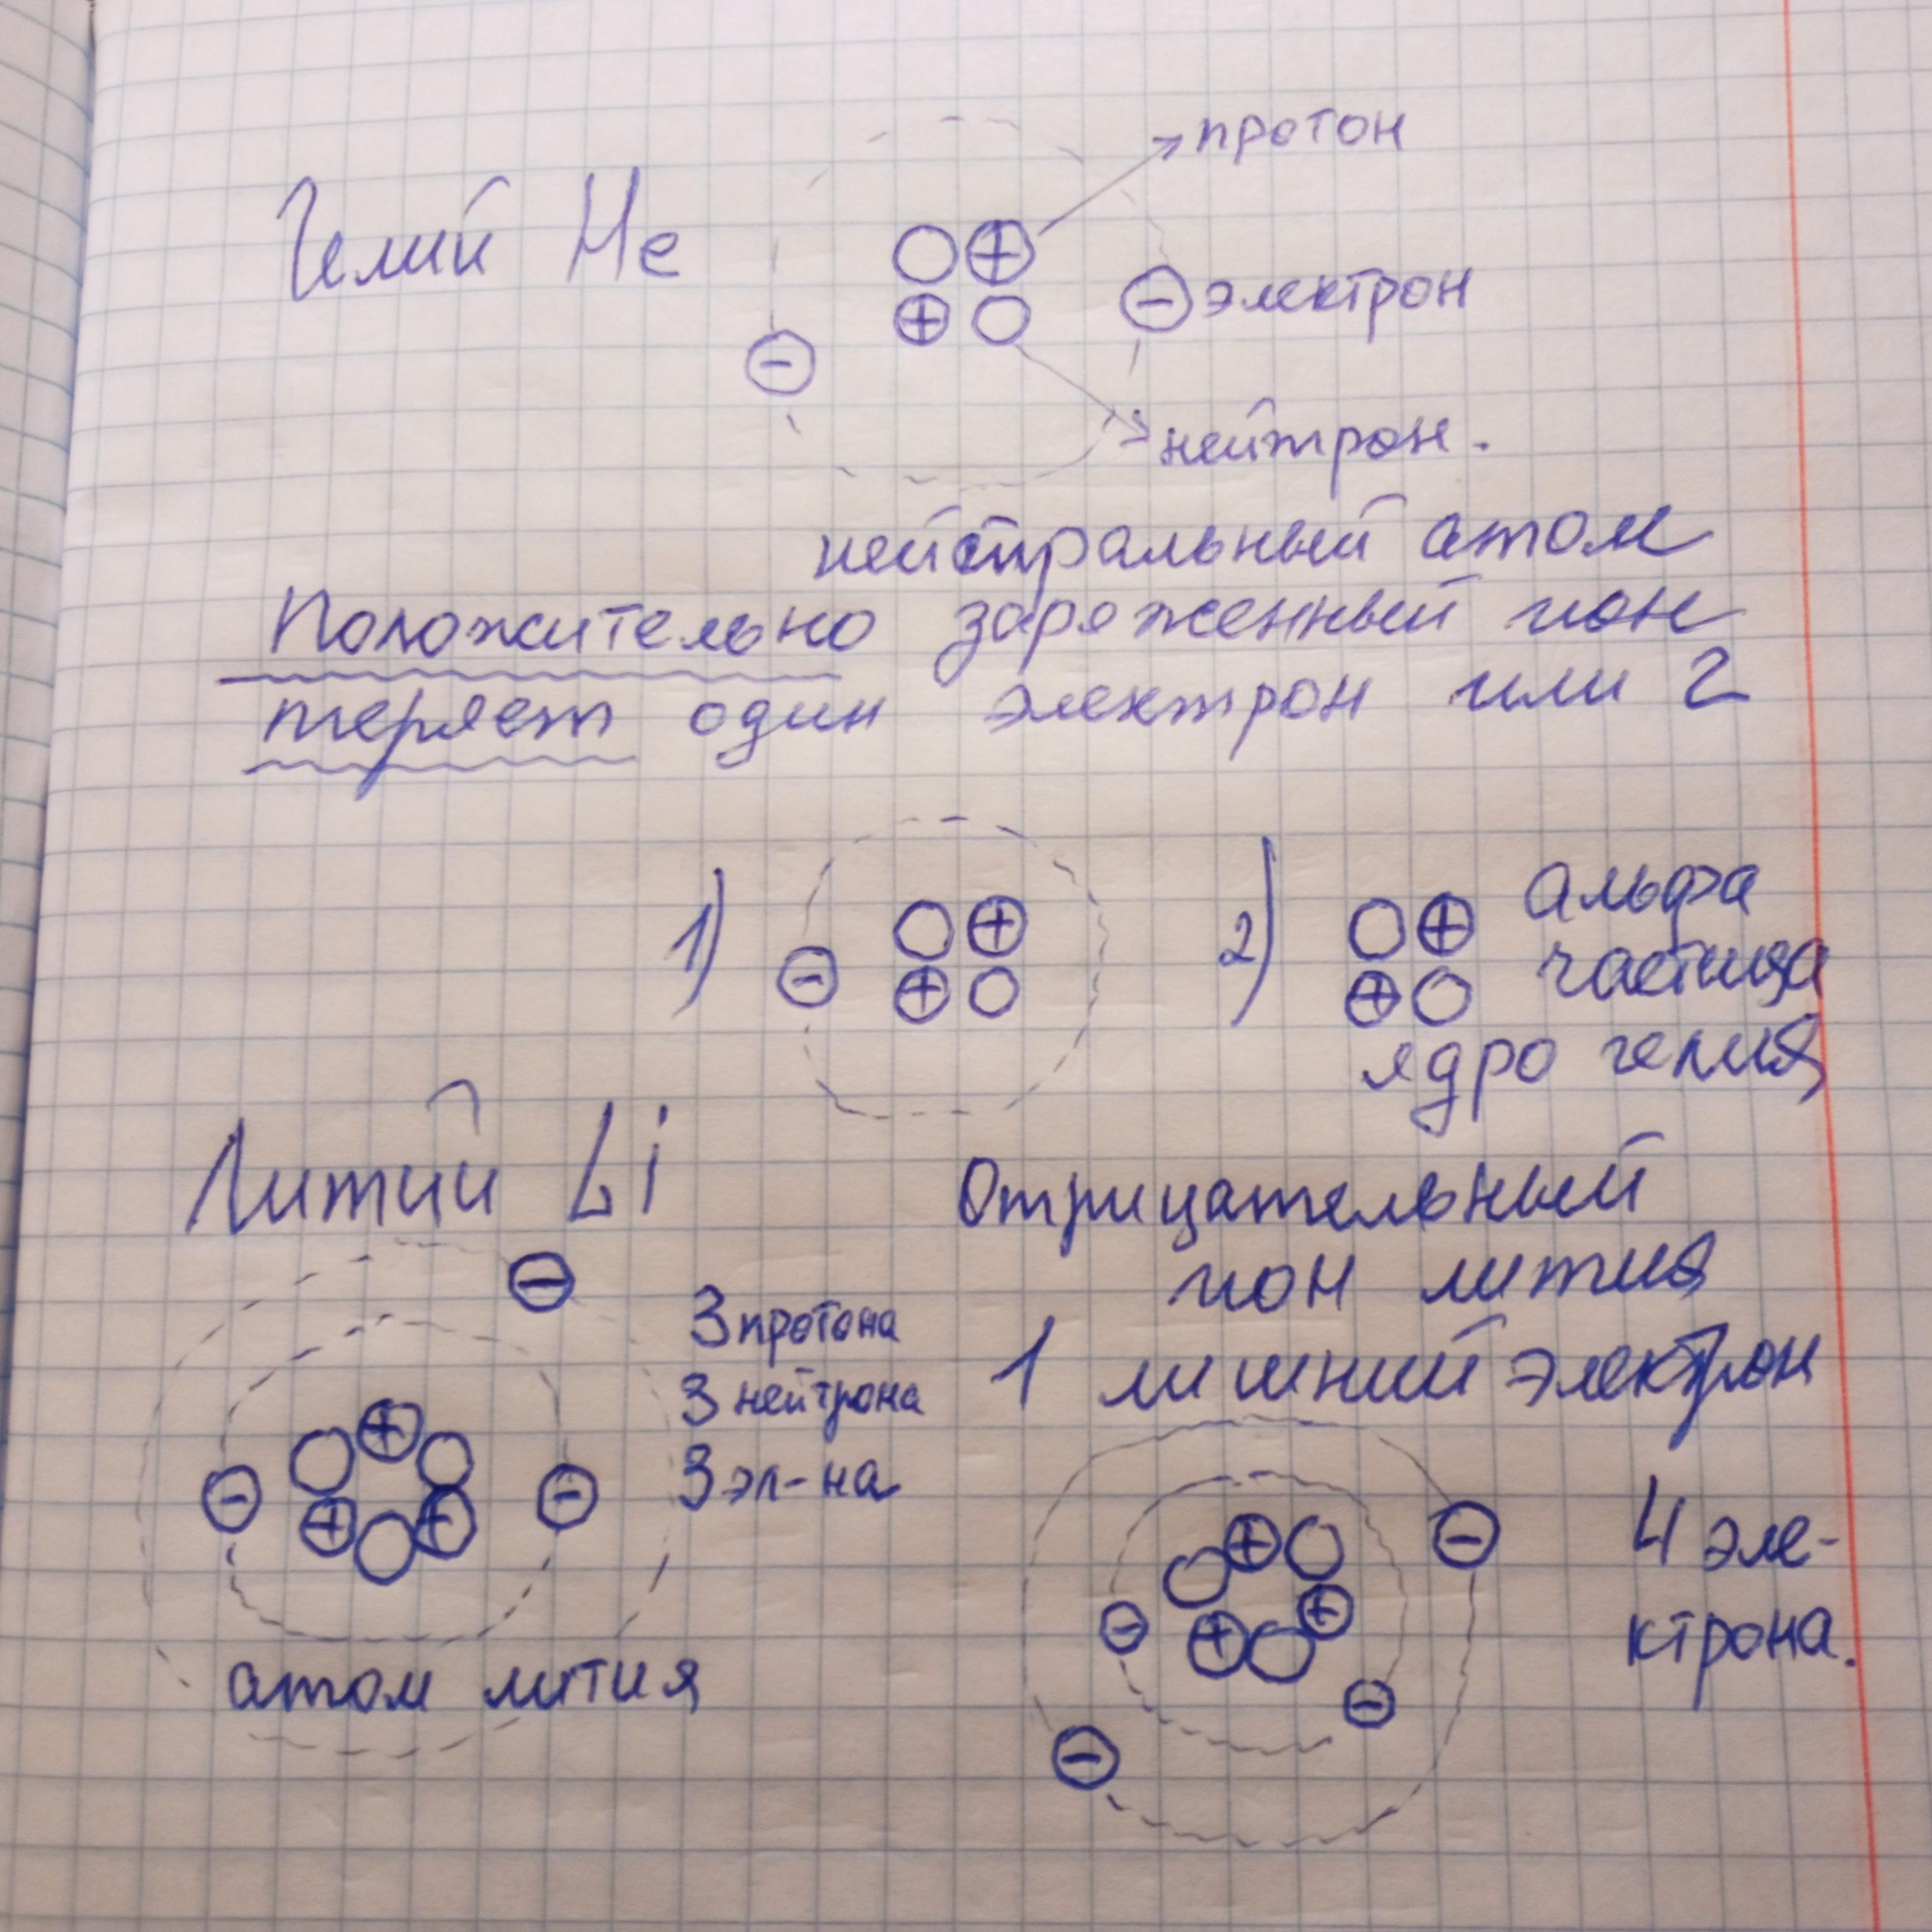 протон
Гелий Не
электрон
нейтрон.
нейтральный атом
Положительно заряженный ион
теряет один электрон или 2
1)
2)
альфа
частица
ядро гелия
Литий Li
Отрицательный
ион лития
3 протона
3 нейтрона
3 эл-на
1 лишний электрон
4 эле-
ктрона.
атом лития